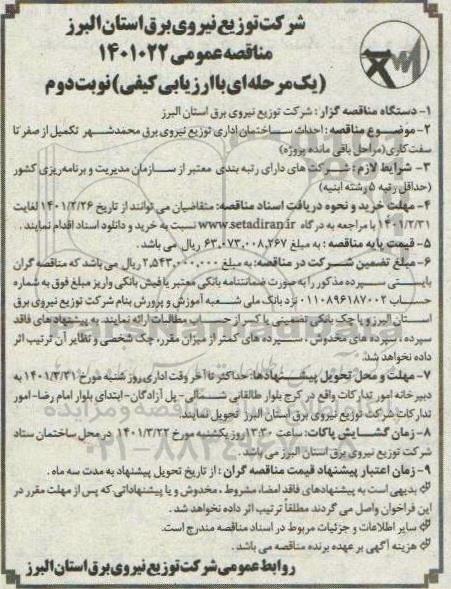 شرکت توزیع نیروی برق استان البرز
مناقصه عمومی ۱۴۰۱۰۲۲
(یک مرحله‌ای با ارزیابی کیفی) نوبت دوم
۱- دستگاه مناقصه گزار: شرکت توزیع نیروی برق استان البرز
۲- موضوع مناقصه: احداث ساختمان اداری توزیع نیروی برق محمدشهر تکمیل از صفر تا
سفت کاری (مراحل باقی مانده پروژه)
۳- شرایط لازم: شرکت های دارای رتبه بندی معتبر از سازمان مدیریت و برنامه ریزی کشور
(حداقل رتبه ۵ رشته ابنیه)
۴- مهلت خرید و نحوه دریافت اسناد مناقصه: متقاضیان می توانند از تاریخ ۱۴۰۱/۲/۲۶ لغایت
۱۴۰۱/۲/۳۱ با مراجعه به درگاه www.setadiran.ir نسبت به خرید و دانلود اسناد اقدام نمایند.
۵- قیمت پایه مناقصه: به مبلغ ۶۳،۰۷۳،۰۰۸،۲۶۷ ریال می باشد.
۶- مبلغ تضمین شرکت در مناقصه: به مبلغ ۲,۵۴۳,۰۰۰,۰۰۰ ریال می باشد که مناقصه گران
بایستی سپرده مذکور را به صورت ضمانتنامه بانکی معتبر یا فیش بانکی واریز مبلغ فوق به شماره
حساب ۰۱۱۰۸۹۶۱۸۷۰۰۲ نزد بانک ملی شعبه آموزش و پرورش بنام شرکت توزیع نیروی برق
استان البرز و یا چک بانکی تضمینی یا کسر از حساب مطالبات ارائه نمایند. به پیشنهادهای فاقد
سپرده، سپرده های مخدوش، سپرده های کمتر از میزان مقرر، چک شخصی و نظایر آن ترتیب اثر
داده نخواهد شد.
۷- مهلت و محل تحویل پیشنهادها: حداکثر تا آخر وقت اداری روز شنبه مورخ ۱۴۰۱/۳/۲۱ به
دبیرخانه امور تدارکات واقع در کرج بلوار طالقانی شمالی- پل آزادگان- ابتدای بلوار امام رضا- امور
تدارکات شرکت توزیع نیروی برق استان البرز تحویل نمایند.
۸- زمان گشایش پاکات: ساعت ۱۳:۳۰ روز یکشنبه مورخ ۱۴۰۱/۳/۲۲ در محل ساختمان ستاد
شرکت توزیع نیروی برق استان البرز می باشد.
۹- زمان اعتبار پیشنهاد قیمت مناقصه گران: از تاریخ تحویل پیشنهاد به مدت سه ماه.
بدیهی است به پیشنهادهای فاقد امضاء، مشروط، مخدوش و یا پیشنهاداتی که پس از مهلت مقرر در
این فراخوان واصل می گردند مطلقاً ترتیب اثر داده نخواهد شد.
سایر اطلاعات و جزئیات مربوط در اسناد مناقصه مندرج است.
هزینه آگهی بر عهده برنده مناقصه می باشد.
روابط عمومی شرکت توزیع نیروی برق استان البرز